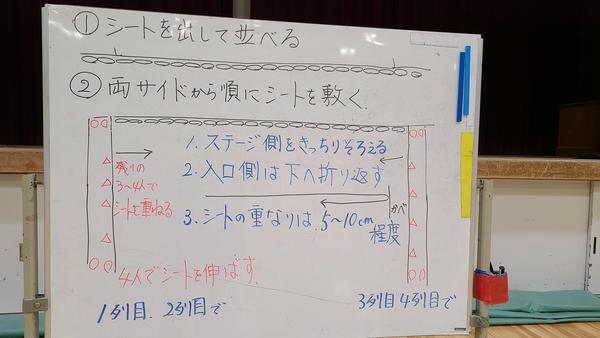 ① シートを出して並べる
② 両サイドから順にシートを敷く.
1. ステージ側をきっちりそろえる
2. 入口側は下へ折り返す
かべ
3. シートの重なりは、5~10cm
程度
残りの
3~4人で
シートを重ねる
4人でシートを伸ばす.
1列目. 2列目で
3列目4列目で